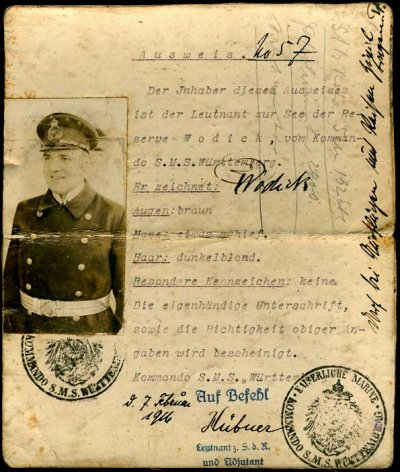 Ausweis. No 57
Der Jnhaber dieses Ausweises
ist der Leutnant zur See der Re
serve Wodick, vom Komman-
do S.M.S. Württemberg.
Er zeichnet: Wodick
Augen: braun
Nase: etwas schief.
Haar: dunkelblond.
Besondere Kennzeichen: keine.
Die eigenhändige Unterschrift,
sowie die Richtigkeit obiger An-
gaben wird bescheinigt.
Kommando S.M.S. „Württem
d. 7. Februar
1916
Auf Befehl
Hübner
Leutnant z. S. d. R.
und Adjutant
KOMMANDO S.M.S. WÜRTTEM
KAISERLICHE MARINE
KOMMANDO S.M.S. WÜRTTEMBERG